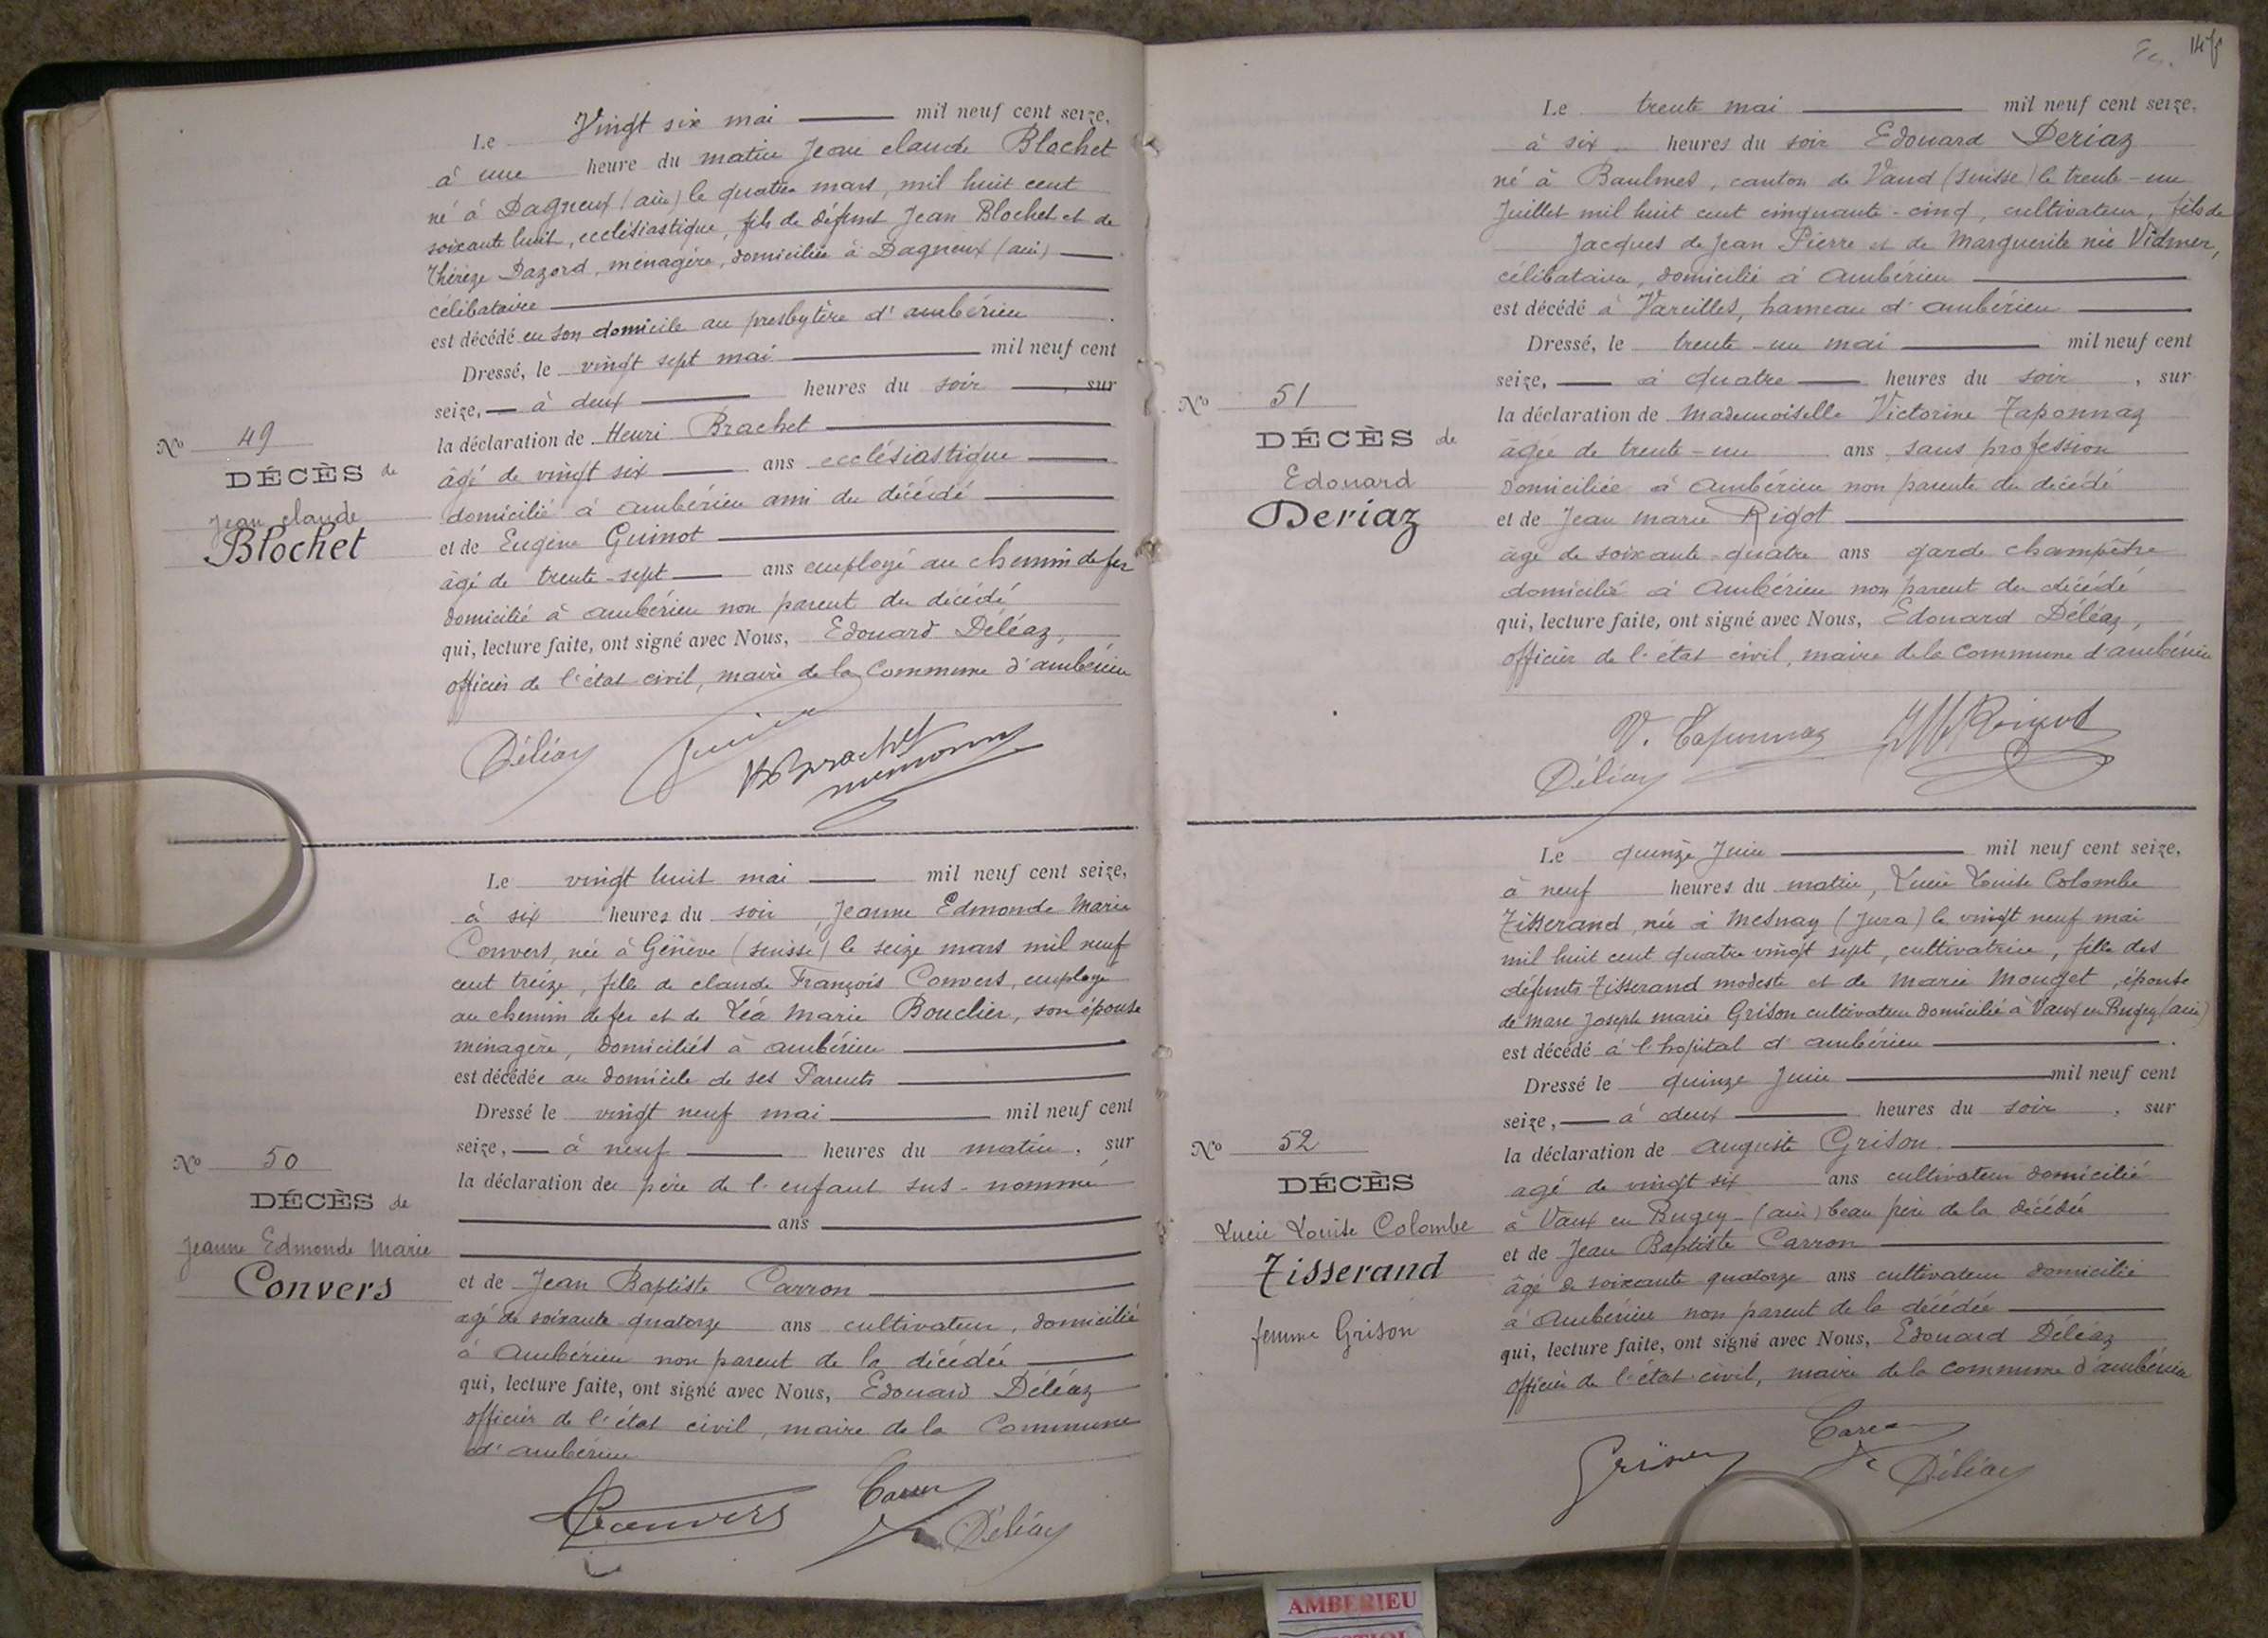 Le Vingt six mai mil neuf cent seize,
à une heure du matin Jean claude Blochet
né à Dagneux (ain) le quatre mars, mil huit cent
soixante huit, ecclésiastique, fils de défunt Jean Blochet et de
Thérèze Dazord, ménagère, domiciliée à Dagneux (ain)
célibataire
est décédé en son domicile au presbytère d'ambérieu
Dressé, le vingt sept mai mil neuf cent
seize, à deux heures du soir, sur
la déclaration de Henri Brachet
âgé de vingt six ans ecclésiastique
domicilié à ambérieu ami du décédé
et de Eugène Guinot
âgé de trente-sept ans employé au chemin de fer
domicilié à ambérieu non parent du décédé
qui, lecture faite, ont signé avec Nous, Edouard Déléaz,
officier de l'état civil, maire de la Commune d'ambérieu
No 49
DÉCÈS de
Jean claude
Blochet
Déléaz
HBrachet
Le vingt huit mai mil neuf cent seize,
à six heures du soir, Jeanne Edmonde Marie
Convers, née à Genève (suisse) le seize mars mil neuf
cent treize, fille de claude François Convers, employé
au chemin de fer et de Léa Marie Bouclier, son épouse
ménagère, domiciliés à ambérieu
est décédée au domicile de ses Parents
Dressé le vingt neuf mai mil neuf cent
seize, à neuf heures du matin, sur
la déclaration du père de l'enfant sus-nommé
ans
et de Jean Baptiste Carron
agé de soixante quatorze ans cultivateur, domicilié
à Ambérieu non parent de la décédée
qui, lecture faite, ont signé avec Nous, Edouard Déléaz
officier de l'état civil, maire de la Commune
d'ambérieu
No 50
DÉCÈS de
Jeanne Edmonde Marie
Convers
Convers
Déléaz
Le trente mai mil neuf cent seize,
à six heures du soir Edouard Deriaz
né à Baulmes, canton de Vaud (suisse) le trente-un
Juillet mil huit cent cinquante-cinq, cultivateur, fils de
Jacques de Jean Pierre et de Marguerite née Vidmer,
célibataire, domicilié à Ambérieu
est décédé à Vareilles, hameau d'ambérieu
Dressé, le trente-un mai mil neuf cent
seize, à quatre heures du soir, sur
la déclaration de Mademoiselle Victorine Taponnaz
âgée de trente-un ans sans profession
domiciliée à Ambérieu non parente du décédé
et de Jean Marie Rigot
âgé de soixante-quatre ans garde champêtre
domicilié à Ambérieu non parent du décédé
qui, lecture faite, ont signé avec Nous, Edouard Déléaz,
officier de l'état civil, maire de la Commune d'ambérieu
No 51
DÉCÈS de
Edouard
Deriaz
V. Taponnaz
Déléaz
Le quinze Juin mil neuf cent seize,
à neuf heures du matin, Lucie Louise Colombe
Tisserand, née à Mesnay (Jura) le vingt neuf mai
mil huit cent quatre vingt sept, cultivatrice, fille des
défunts Tisserand modeste et de Marie Mouget, épouse
de Marc Joseph marie Grison cultivateur domicilié à Vaux en Bugey (ain)
est décédé à l'hopital d'ambérieu
Dressé le quinze Juin mil neuf cent
seize, à deux heures du soir, sur
la déclaration de auguste Grison
agé de vingt six ans cultivateur domicilié
à Vaux en Bugey (ain) beau père de la décédée
et de Jean Baptiste Carron
âgé de soixante quatorze ans cultivateur domicilié
à Ambérieu non parent de la décédée
qui, lecture faite, ont signé avec Nous, Edouard Déléaz
officier de l'état civil, maire de la commune d'ambérieu
No 52
DÉCÈS
Lucie Louise Colombe
Tisserand
femme Grison
Grison
Déléaz
AMBERIEU